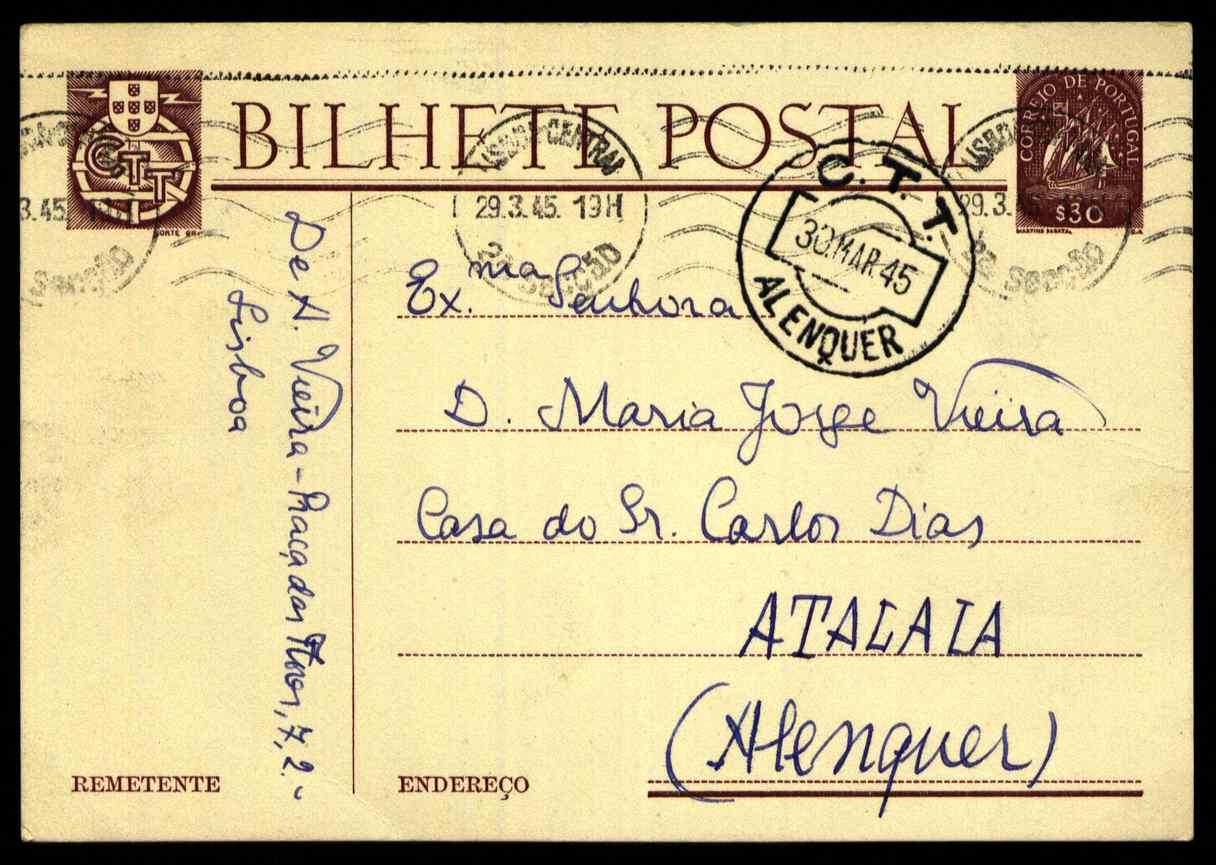 BILHETE POSTAL
CTT
CORREIO DE PORTUGAL
$30
LISBOA CENTRAL
29.3.45. 19H
2ª Secção
C.T.T.
30.MAR.45
ALENQUER
Ex.ma Senhora
D. Maria Jorge Vieira
Casa do Sr. Carlos Dias
ATALAIA
(Alenquer)
De A. Vieira - Praça das Flores, 7, 2.º
Lisboa
REMETENTE
ENDEREÇO